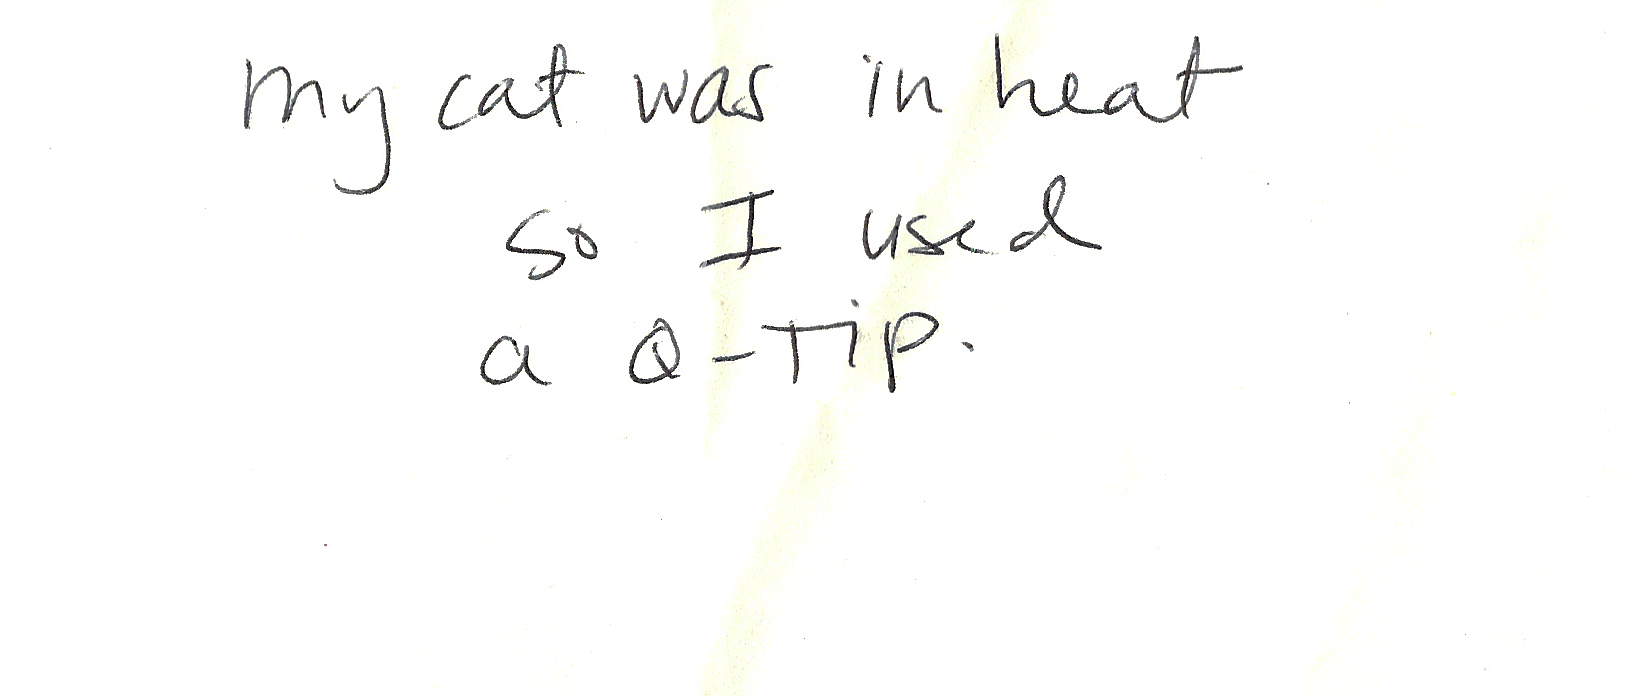 my cat was in heat
so I used
a Q-Tip.